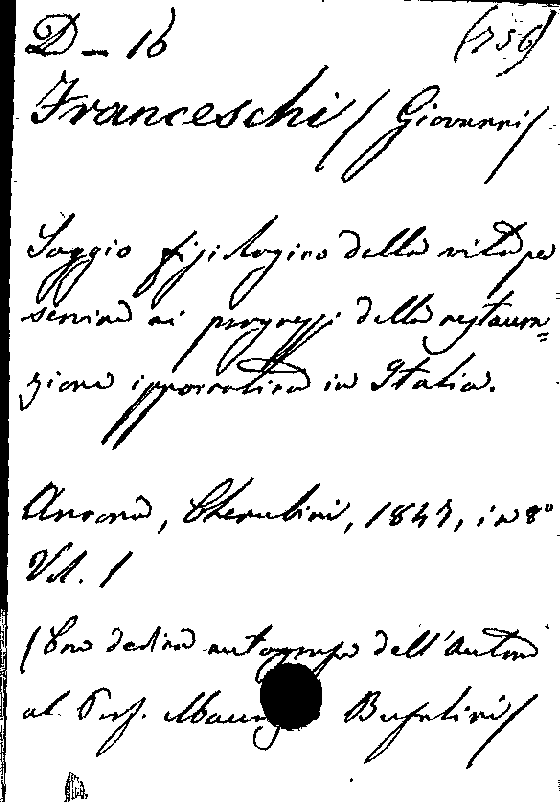 D - 16 (756)
Franceschi / Giovanni /
Saggio fisiologico della vita pe
servire ai progressi della restaura=
zione ippocratica in Italia.
Ancona, Cherubini, 1847, in 8°
Vol. 1
(Con dedica autografa dell'Autore
al Prof. Bufalini /